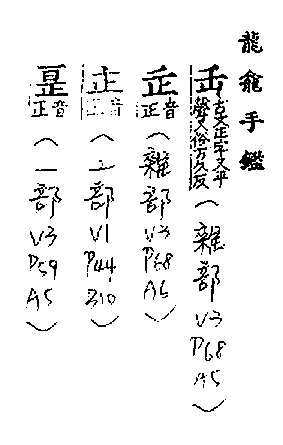 龍龕手鑑
古文正字又平
聲又俗方久反
（雜部 V3 P68 A5）
音正（雜部 V3 P68 A6）
音正（部 V1 P44 B10）
音正（一部 V3 P59 A5）